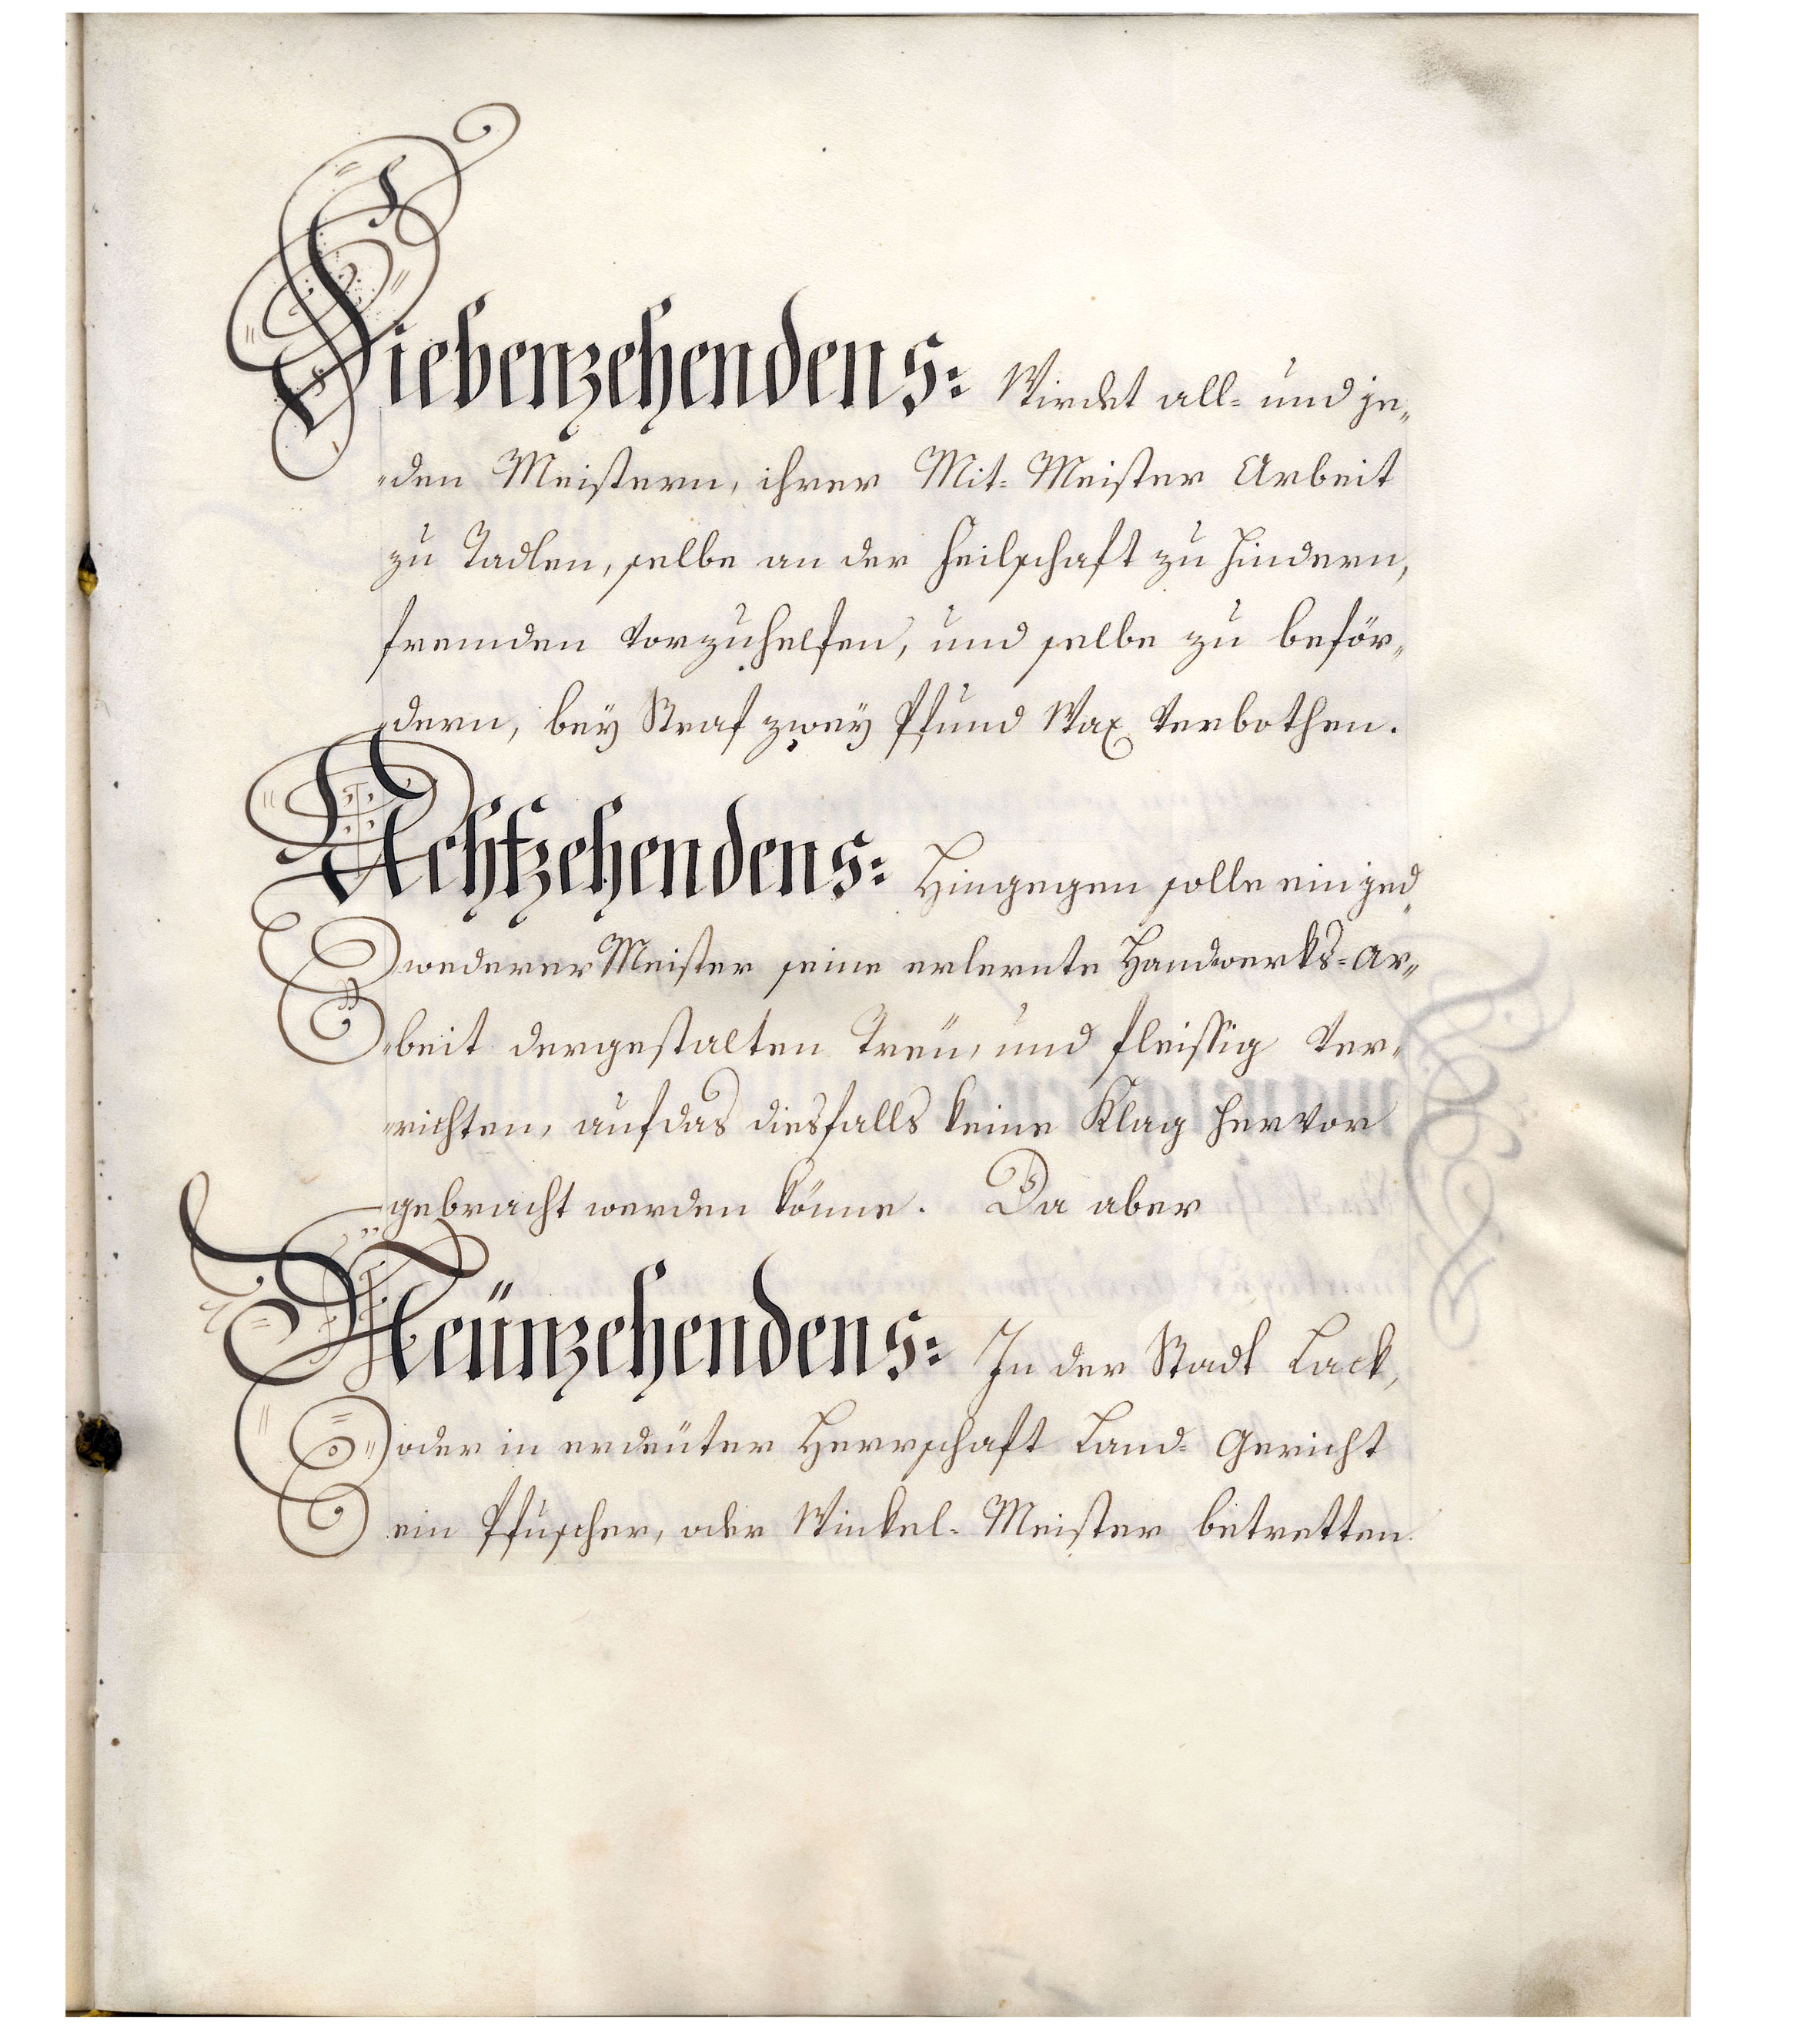 Siebenzehendens: Wirdet all= und je„
„den Meistern, ihrer Mit= Meister Arbeit
zu Tadlen, selbe an der Feilschaft zu hindern,
fremden vorzuhelfen, und selbe zu beför„
„dern, bey Straf zwey Pfund Wax verbothen.
Achtzehendens: Hingegen solle ein jed„
wederer Meister seine erlernte Handwerks=Ar„
„beit dergestalten Treu, und fleissig ver„
„richten, auf das diesfalls keine Klag hervor
gebracht werden könne. Da aber
Neünzehendens: In der Stadt Lack,
oder in erdeüter Herrschaft Land= Gericht
ein Pfuscher, oder Winkel= Meister betretten